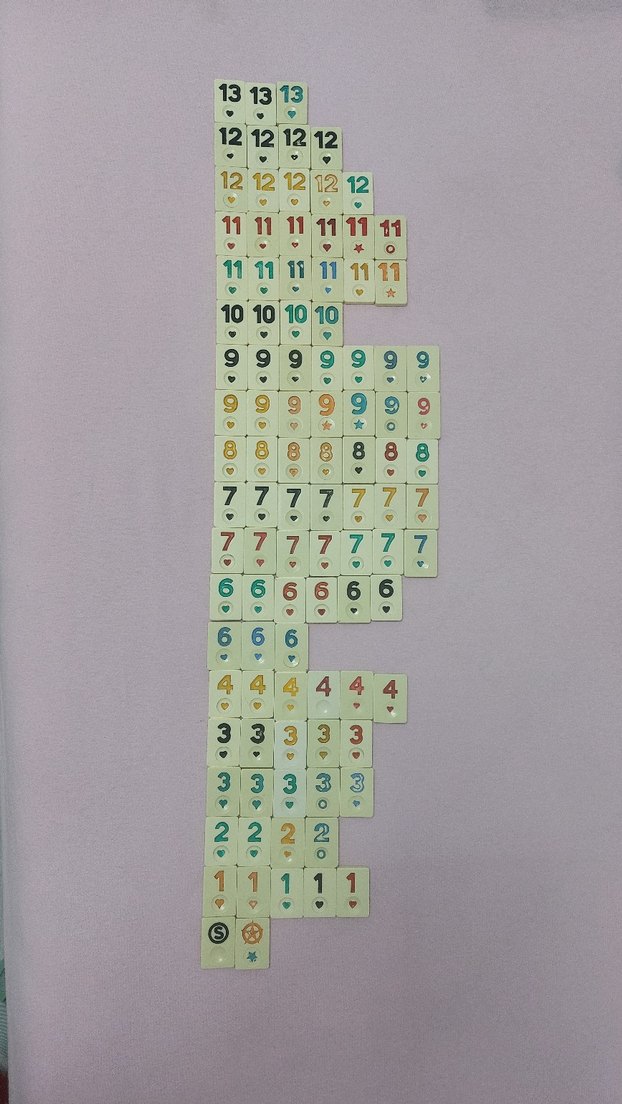 13 13 13
12 12 12 12
12 12 12 12 12
11 11 11 11 11 11
11 11 11 11 11 11
10 10 10 10
9 9 9 9 9 9 9
9 9 9 9 9 9 9
8 8 8 8 8 8 8
7 7 7 7 7 7 7
7 7 7 7 7 7 7
6 6 6 6 6 6
6 6 6
4 4 4 4 4 4
3 3 3 3 3
3 3 3 3 3
2 2 2 2
1 1 1 1 1
S